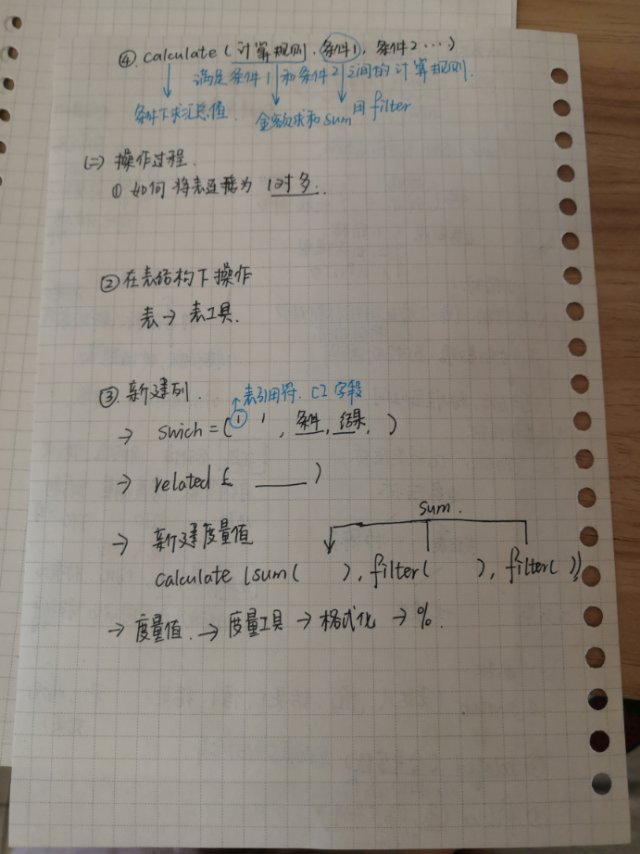 ④ calculate (计算规则, 条件1, 条件2 ···)
满足条件1和条件2之间的计算规则.
条件下求汇总值. 金额求和sum 用filter
(二) 操作过程.
① 如何将表连接为 1对多.
② 在表结构下操作
表 → 表工具.
③ 新建列.
表引用符. [] 字段
→ swich = ( ' ' , 条件, 结果, )
→ related ( ____ )
→ 新建度量值
sum.
calculate (sum( ), filter( ), filter( ))
→ 度量值 → 度量工具 → 格式化 → %.